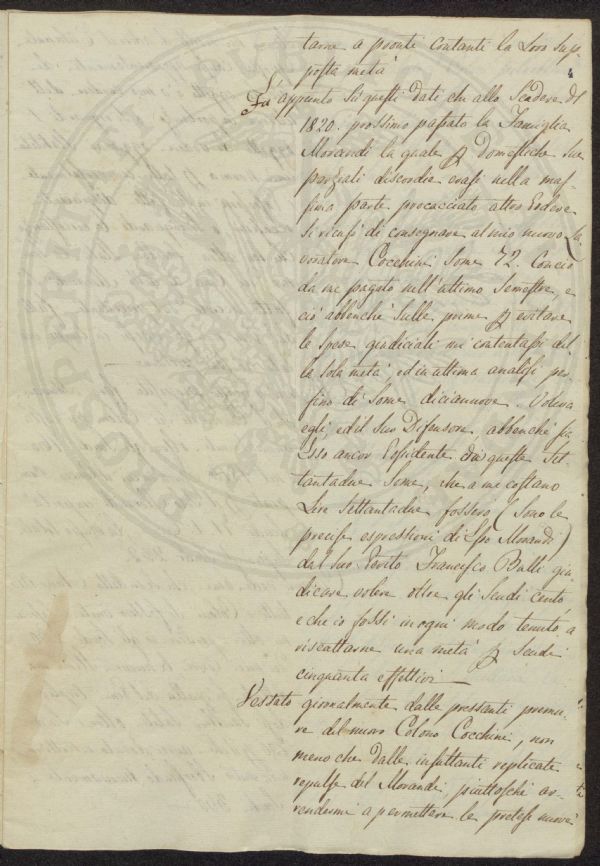 tarne a pronti contanti la loro sup-
posta metà
Fù appunto sù questi dati che allo scadere del
1820. prossimo passato la Famiglia
Morandi la quale p domestiche sue
parziali discordie erasi nella mas-
sima parte procacciato altro Podere
si ricusò di consegnare al mio nuovo La-
voratore Cocchini some 72. Concio
da me pagato nell'ultimo semestre, e
ciò abbenchè sulle prime p evitare
le spese giudiciali mi contentassi del-
la sola metà, ed in ultima analisi per-
fino di some diciannove. Voleva
egli, ed il suo Difensore, abbenchè fu
Esso ancor Possidente che queste Set-
tantadue some, che a me costano
Lire settantadue fossero (sono le
precise espressioni di Morandi)
dal suo Perito Francesco Bulli giu-
dicare valere oltre gli scudi cento,
e che io fossi in ogni modo tenuto a
riscattarne una metà p scudi
cinquanta effettivi
Vessato giornalmente dalle pressanti premu-
re del nuovo Colono Cocchini, non
meno che dalle insultanti replicate
repulse del Morandi, piuttosto chè ar-
rendermi a permettere le pretese nuove